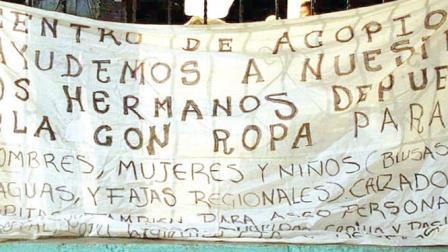 ENTRO DE ACOPIO
AYUDEMOS A NUEST
OS HERMANOS DE PUE
BLA CON ROPA PARA
OMBRES, MUJERES Y NIÑOS (BLUSAS
AGUAS, Y FAJAS REGIONALES) CALZADO
TAMBIEN PARA ASEO PERSONA